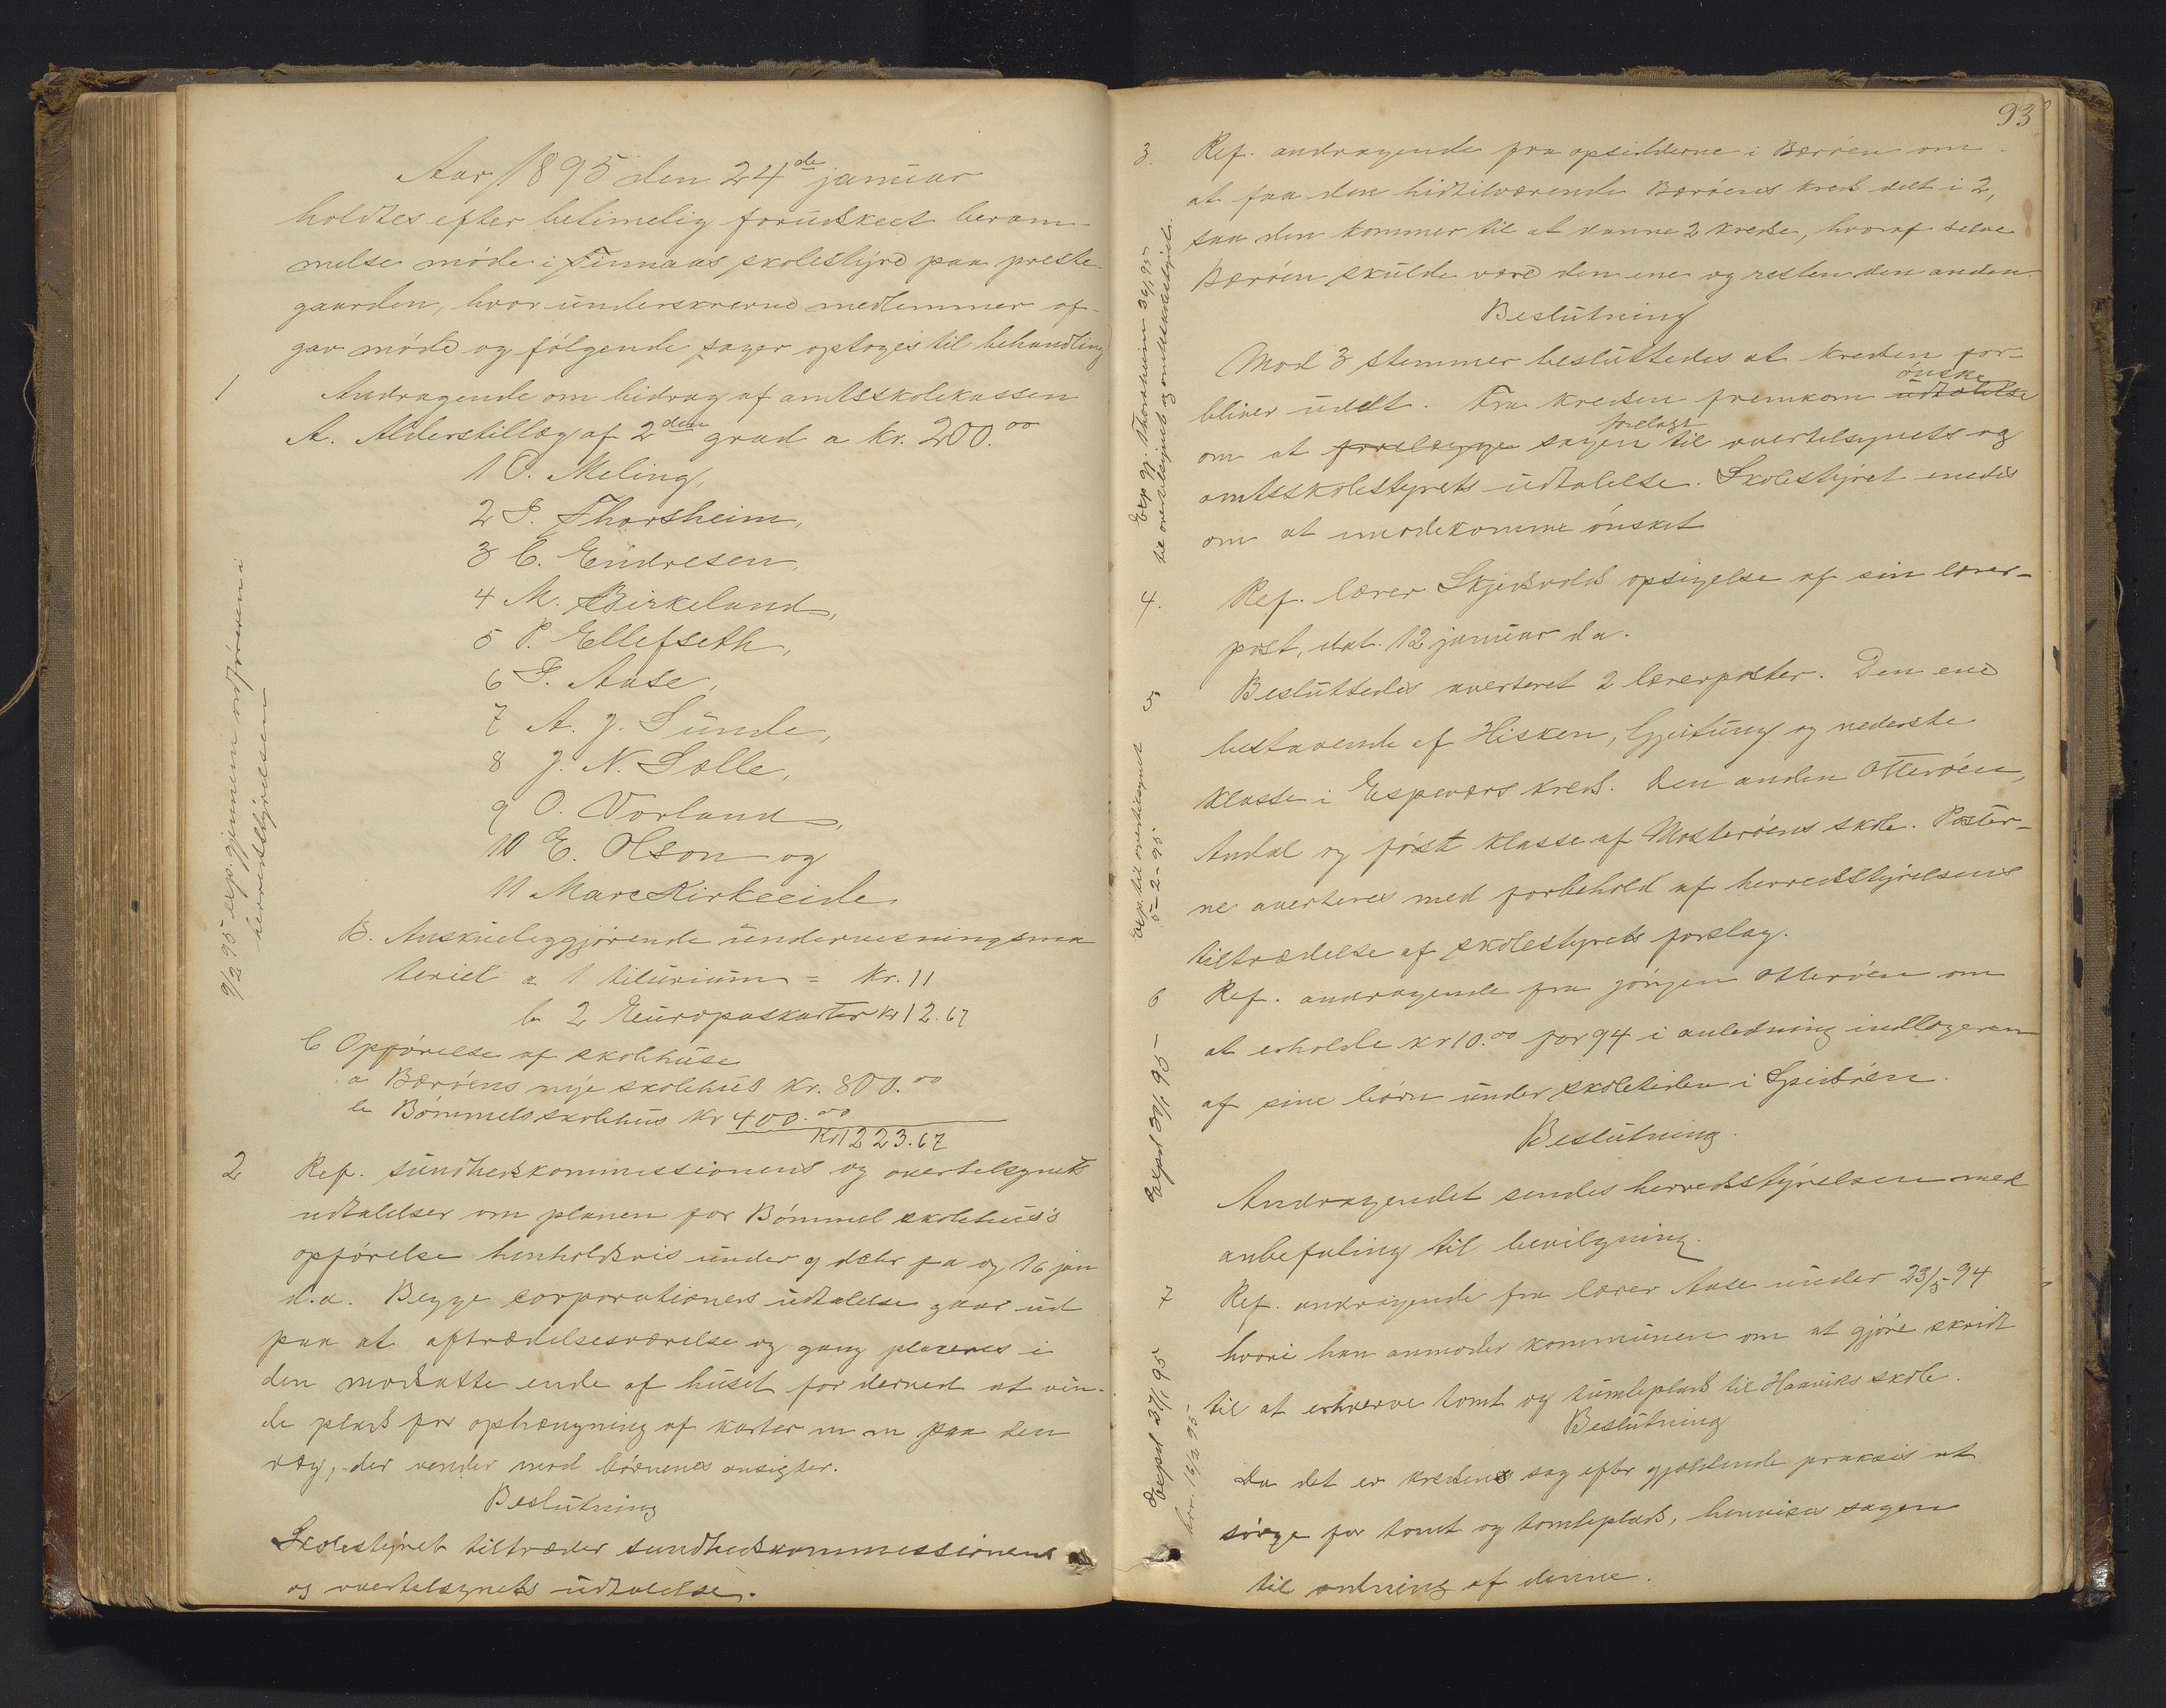 Aar 1895 den 24de januar
holdtes efter betimelig forudskeet beram-
melse møde i Finnaas skolestyre paa preste-
gaarden, hvor underskrevne medlemmer af-
gav møde og følgende sager optoges til behandling
1 Andragende om bidrag af amtsskolekassen
A. Alderstillæg af 2den grad a kr. 200.00
1 O. Meling,
2 I. Thorsheim,
3 C. Endresen,
4 M. Birkeland,
5 P. Ellefseth,
6 I. Aase,
7 A. J. Sunde,
8 J. N. Solle,
9 O. Vorland,
10 E. Olson og
11 Mare Kirkeeide.
B. Anskueliggjørende undervisningsma
teriel a 1 tilurium = kr. 11
b 2 Europaskarter kr 12.67
C Opførelse af skolehuse
a Bærøens nye skolehus kr. 800.00
b Bømmels skolehus kr 400.00
Kr 1223.67
9/2 95 exp. gjennem ordføreren i
herredsstyrelsen
2 Ref. sundhedskommissionens og overtilsynets
udtalelser om planen for Bømmel skolehus's
opførelse henholdsvis under 9 dcbr f a og 16 jan
d.a. Begge corporationers udtalelse gaar ud
paa at aftrædelsesværelse og gang placeres i
den modsatte ende af huset for derved at vin-
de plads for ophængning af karter m m paa den
væg, der vender mod børnenes ansigter.
Beslutning
Skolestyret tiltræder sundhedskommissionens
og overtilsynets udtalelse.
93
3. Ref. andragende fra opsidderne i Bærøen om
at faa den hidtilværende Bærøens kreds delt i 2,
saa den kommer til at danne 2 kredse, hvoraf selve
Bærøen skulde være den ene og resten den anden.
Beslutning
Mod 3 stemmer besluttedes at kredsen for-
bliver udelt. Fra kredsen fremkom udtalelse ønske
om at forelægge forelagt sagen til overtilsynets og
amtsskolestyrets udtalelse. Skolestyret enedes
om at imødekomme ønsket
Exp gj. Thorsheim 30/1 95
til overtilsynet og amtsskolestyret.
4. Ref. lærer Skjelsvolds opsigelse af sin lærer-
post, dat. 12 januar d a.
5 Besluttedes averteret 2 lærerposter. Den ene
bestaaende af Hisken, Gjeitung og nederste
klasse i Espeværs kreds. Den anden Otterøen,
Andal og først klasse af Mosterøens skole. Poster-
ne averteres med forbehold af herredsstyrelsens
tiltrædelse af skolestyrets forslag.
Exp. til overtilsynet
5-2-95
6 Ref. andragende fra Jørgen Otterøen om
at erholde kr 10.00 for 94 i anledning indlogeren
af sine børn under skoletiden i
Beslutning.
Andragendet sendes herredsstyrelsen med
anbefaling til bevilgning.
Exped 30/1 95-
7 Ref. andragende fra lærer Aase under 23/5-94
hvori han anmoder kommunen om at gjøre skridt
til at erhverve tomt og tumleplads til Haaviks skole.
Beslutning
Da det er kredsens sag efter gjældende praksis at
sørge for tomt og tomleplads, henvises sagen
til ordning af denne.
Exped 31/1 95